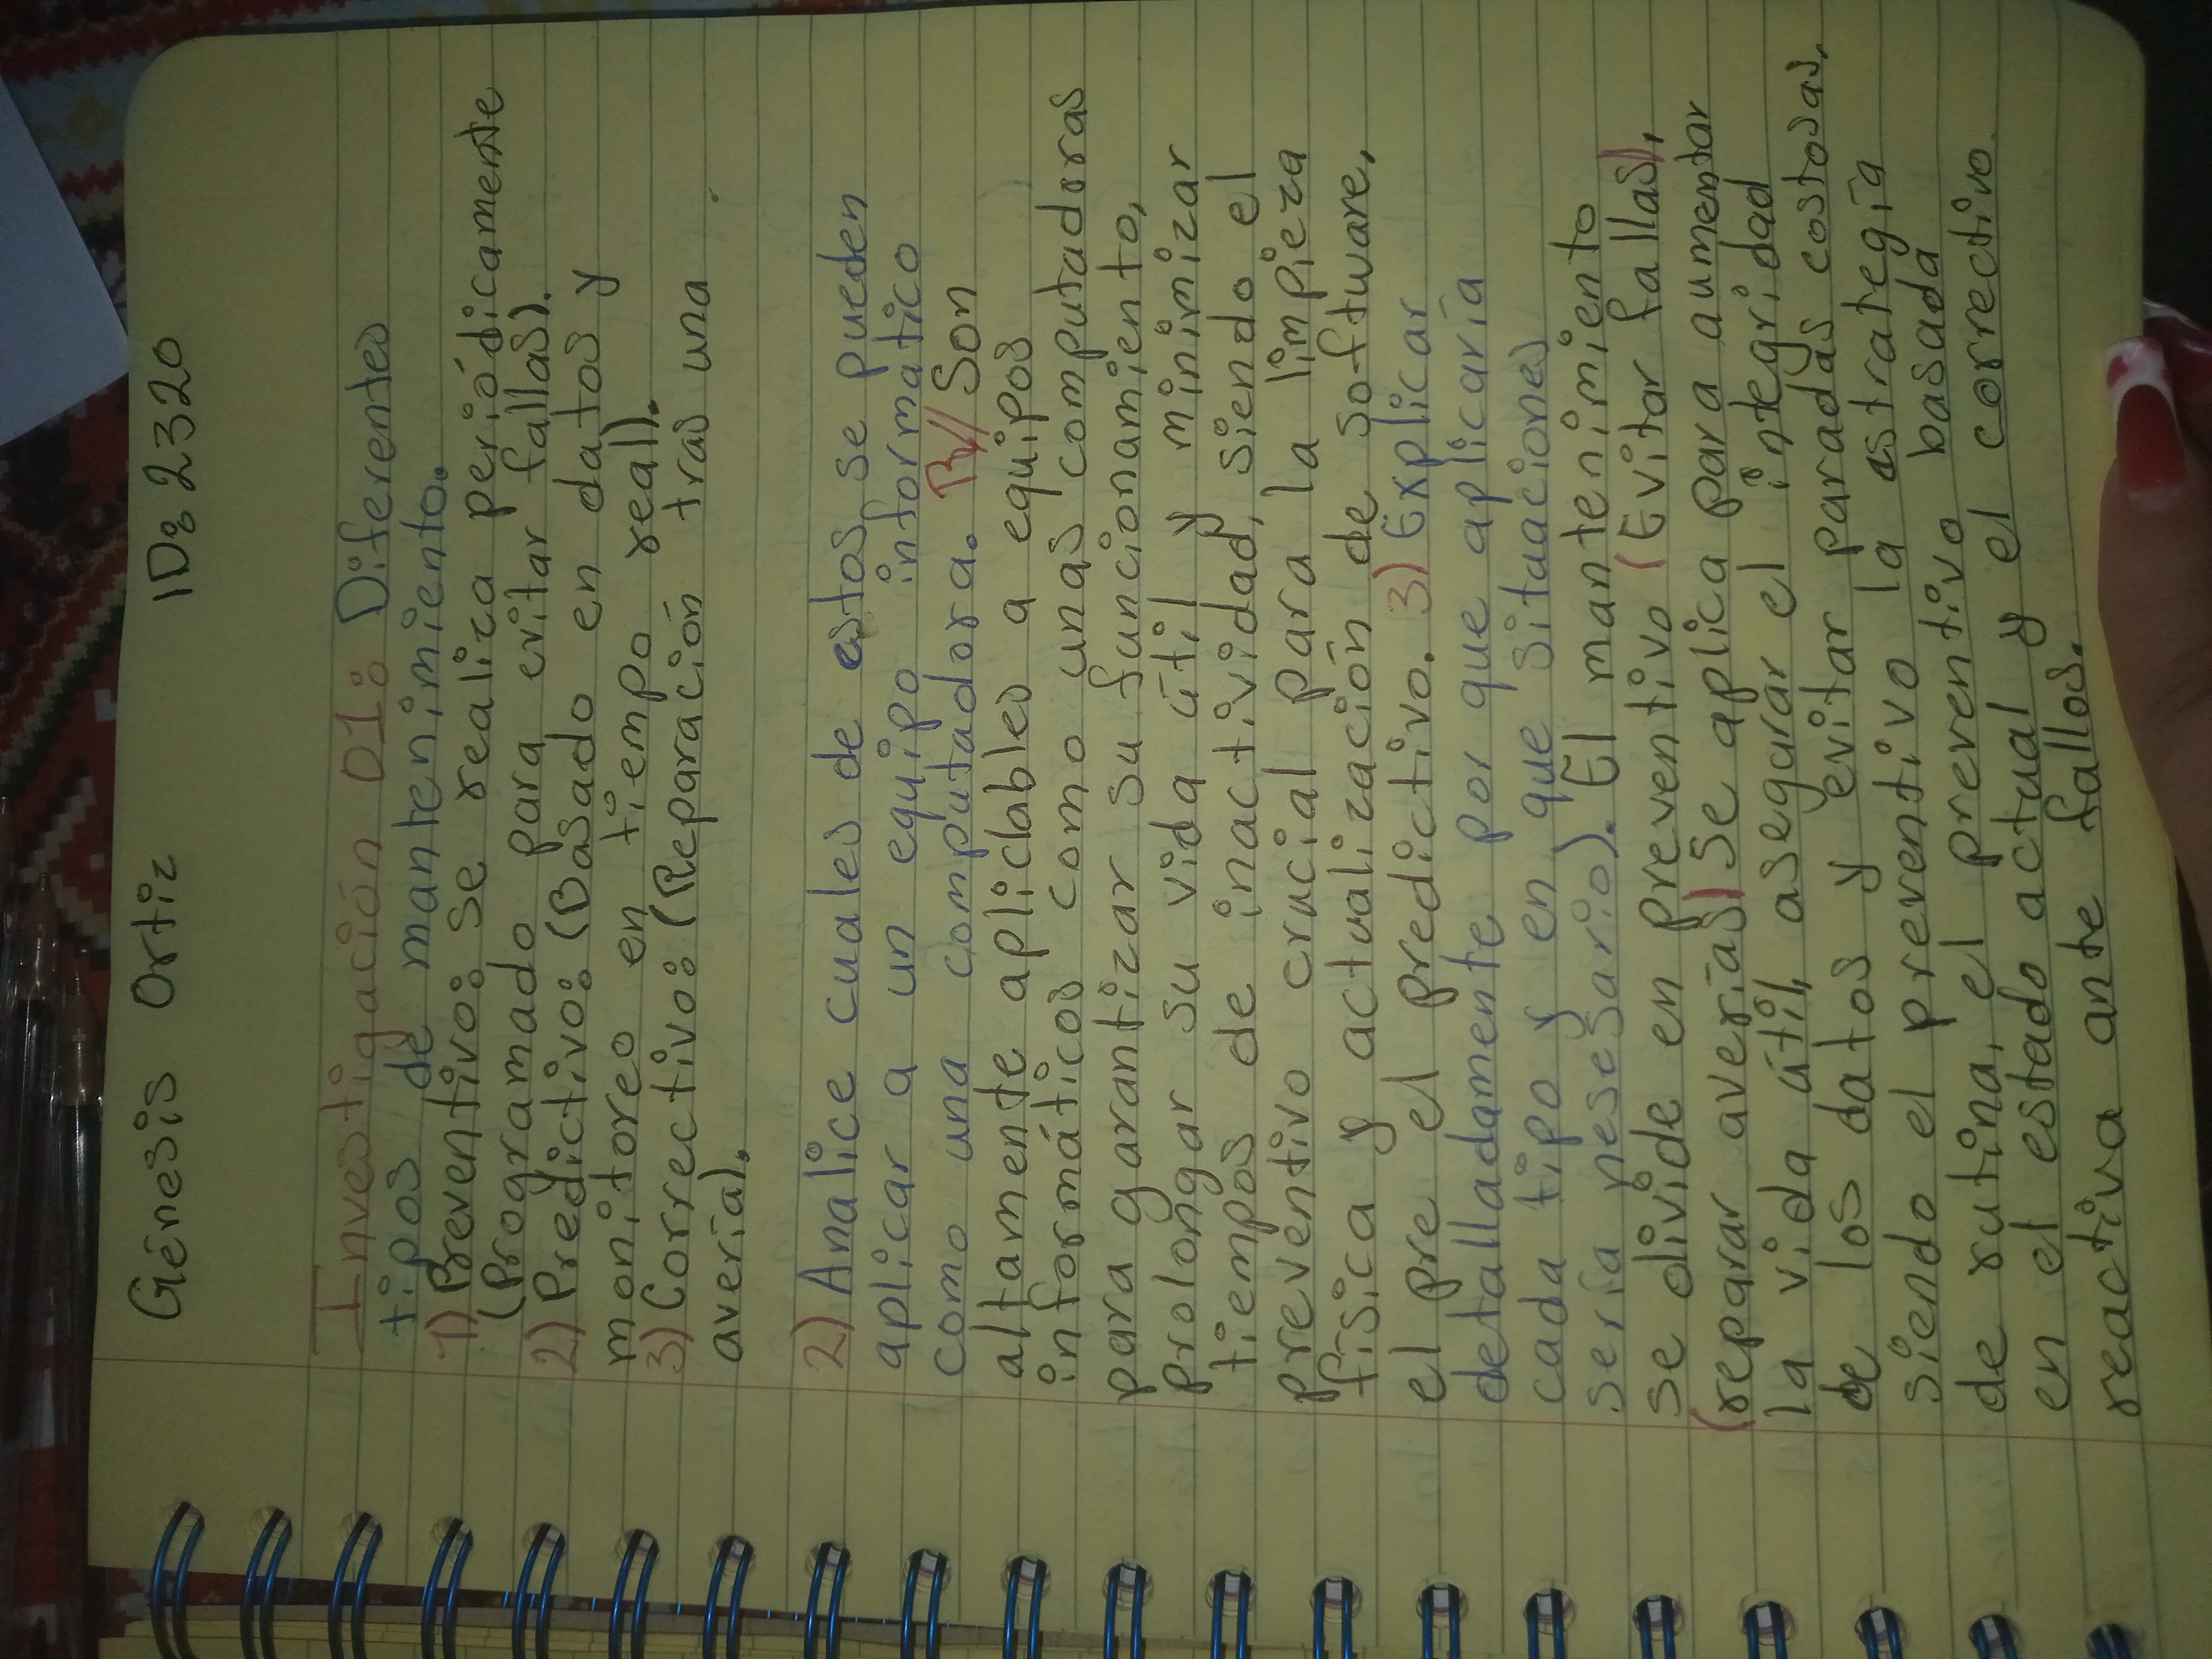 Génesis Ortiz ID: 2320
Investigación 01: Diferentes
tipos de mantenimiento.
1) Preventivo: Se realiza periódicamente
(Programado para evitar fallas).
2) Predictivo: (Basado en datos y
monitoreo en tiempo real).
3) Correctivo: (Reparación tras una
avería).
2) Analice cuales de estos se pueden
aplicar a un equipo informatico
como una computadora. R// Son
altamente apliclables a equipos
informáticos como unas computadoras
para garantizar su funcionamiento,
prolongar su vida útil y minimizar
tiempos de inactividad, siendo el
preventivo crucial para la limpieza
física y actualización de software,
el pre el predictivo. 3) Explicar
detalladamente por que aplicaría
cada tipo y en que situaciones
sería nesesario). El mantenimiento
se divide en preventivo (Evitar fallas),
(reparar averías) Se aplica para aumentar
la vida útil, asegurar el integridad
de los datos y evitar paradas costosas,
siendo el preventivo la estrategia
de rutina, el preventivo basada
en el estado actual y el correctivo
reactiva ante fallos.